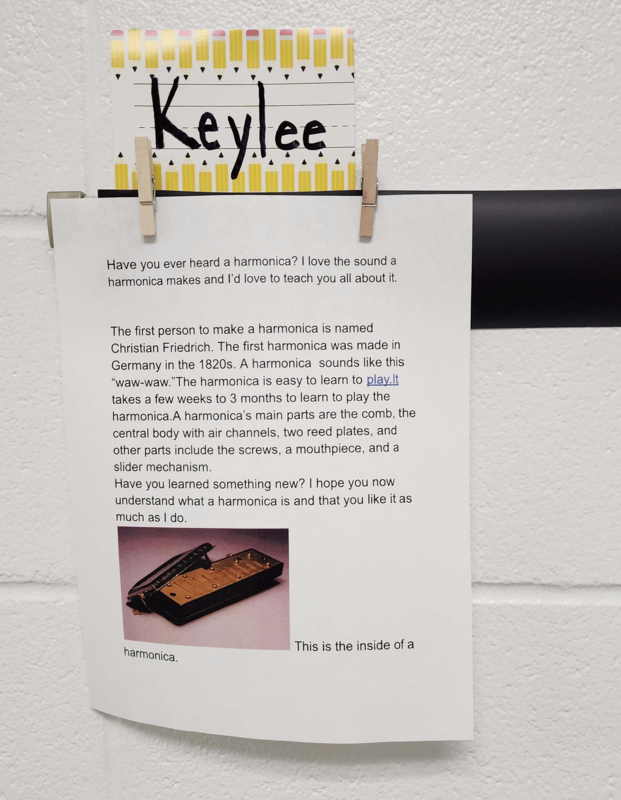 Keylee
Have you ever heard a harmonica? I love the sound a
harmonica makes and I'd love to teach you all about it.
The first person to make a harmonica is named
Christian Friedrich. The first harmonica was made in
Germany in the 1820s. A harmonica  sounds like this
"waw-waw."The harmonica is easy to learn to play.It
takes a few weeks to 3 months to learn to play the
harmonica.A harmonica's main parts are the comb, the
central body with air channels, two reed plates, and
other parts include the screws, a mouthpiece, and a
slider mechanism.
Have you learned something new? I hope you now
understand what a harmonica is and that you like it as
much as I do.
This is the inside of a
harmonica.